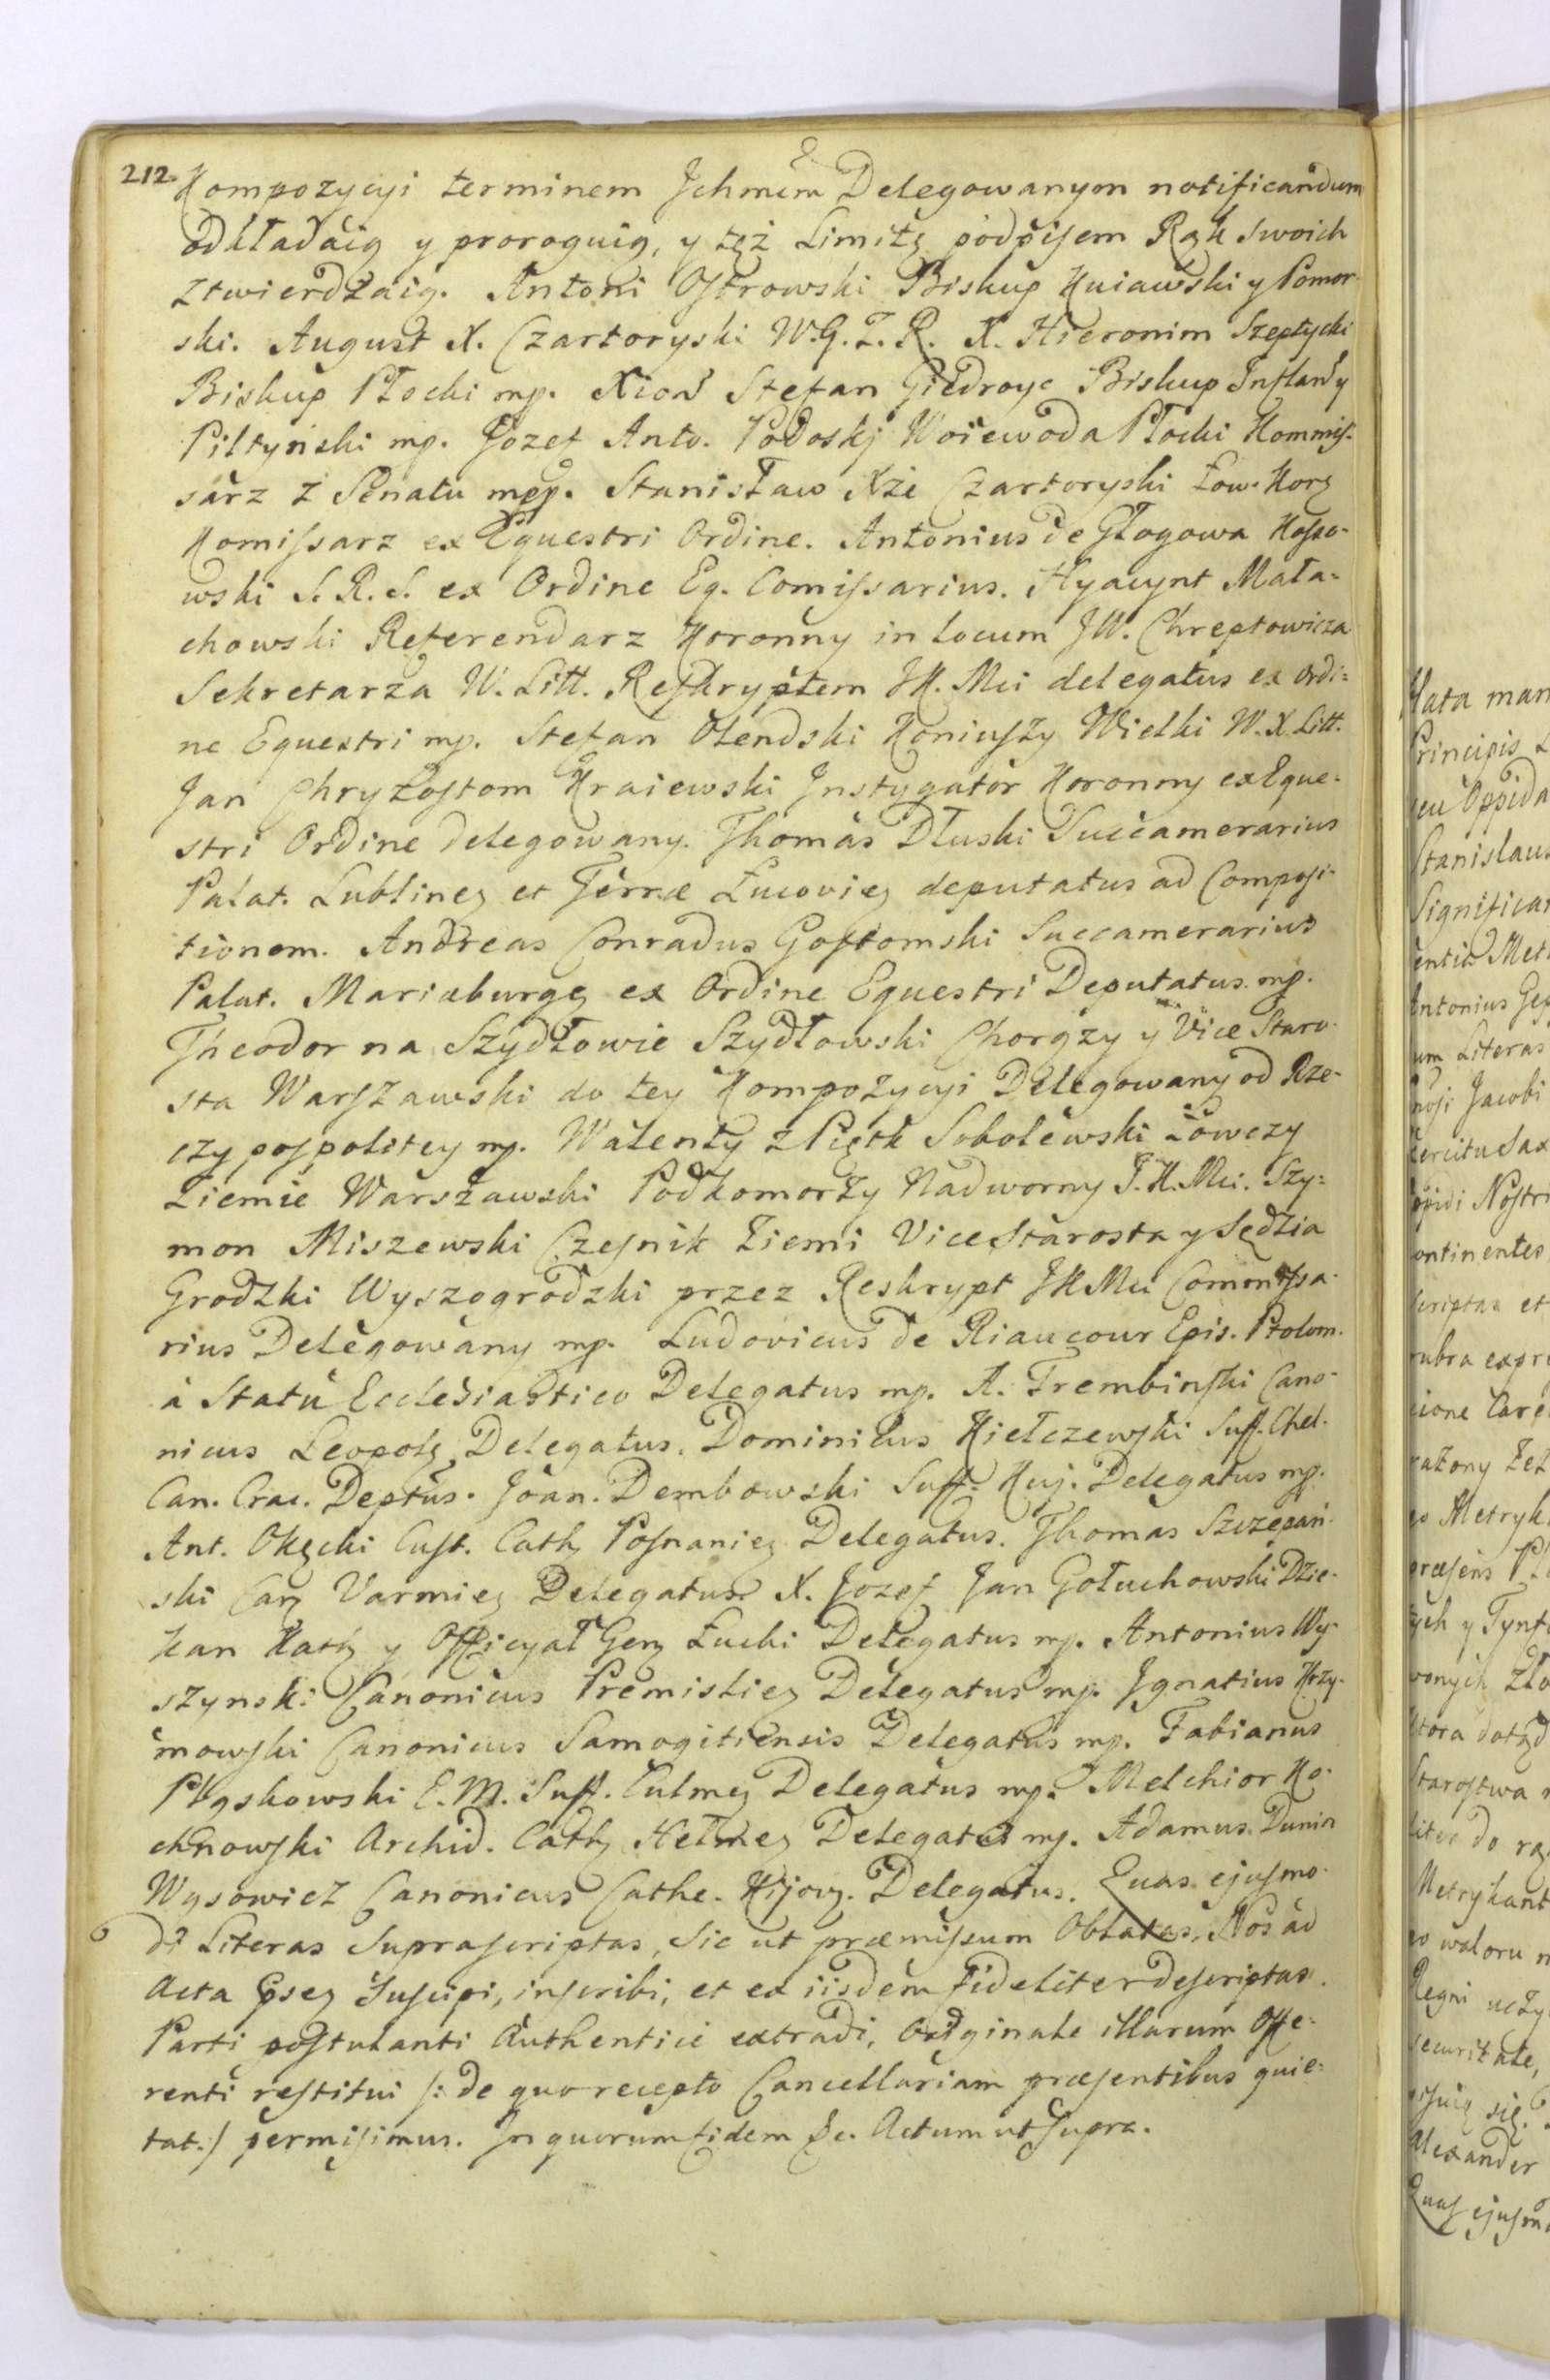 212. Kompozycyi terminem Jchmcm Delegowanym notificandum
odkładaią y proroguią, y tęż Limitę podpisem Rąk Swoich
Ztwierdzaią. Antoni Ostrowski Biskup Kuiawski y Pomor-
ski. August X. Czartoryski W.G.Z.R. X. Hieronim Szeptycki
Biskup Płocki mp. Xiąd Stefan Giedroyc Biskup Inflant y
Piltyński mp. Jozef Anto. Podoskj Woiewoda Płocki Kommis-
sarz z Senatu mpp. Stanisław Xże Czartoryski Łow. Korȝ
Komissarz ex Equestri Ordine. Antonius de Głogowa Kosso-
wski S.R.S. ex Ordine Eq. Comissarius. Hyacynt Mała-
chowski Referendarz Koronny in locum JW. Chreptowicza
Sekretarza W. Litt. Reskryptem JK. Mci delegatus ex Ordi-
ne Equestri mp. Stefan Olendski Koniuszy Wielki W.X. Litt.
Jan Chryzostom Kraiewski Jnstygator Koronny ex Eque-
stri Ordine delegowany. Thomas Dłuski Succamerarius
Palat. Lublineȝ et Terræ Łucovieȝ deputatus ad Composi-
tionem. Andreas Conradus Gostomski Succamerarius
Palat. Mariæburgȝ ex Ordine Equestri Deputatus mp.
Theodor na Szydłowie Szydłowski Chorąży y Vice Staro-
sta Warszawski do tey Kompozycyi Delegowany od Rze-
czypospolitey mp. Walenty z Piętk Sobolewski Łowczy
Ziemie Warszawski Podkomorzy Nadworny J.K. Mci. Szy-
mon Miszewski Czesnik Ziemi Vice Starosta y Sędzia
Grodzki Wyszogrodzki przez Reskrypt JKMci Commissa-
rius Delegowany mp. Ludovicus de Riaucour Epis. Ptolom.
à Statu Ecclesiastico Delegatus mp. A. Trembinski Cano-
nicus Leopolȝ Delegatus. Dominicus Kiełczewski Suff. Chel.
Can. Crac. Deptus. Joan. Dembowski Suff. Kuj. Delegatus mp.
Ant. Okęcki Cust. Cathȝ Posnanieȝ Delegatus. Thomas Szczepań-
ski Canȝ Varmieȝ Delegatus X. Jozef Jan Gołuchowski Dzie-
kan Kathȝ y Officyał Genȝ Łucki Delegatus mp. Antonius Wy-
szynski Canonicus Premislieȝ Delegatus mp. Jgnatius Krzy-
mowski Canonicus Samogitiensis Delegatus mp. Fabianus
Pląskowski E.M. Suff. Culmeȝ Delegatus mp. Melchior Ko-
chnowski Archid. Cathȝ Helmeȝ Delegatus mp. Adamus Dunin
Wąsowicz Canonicus Cathe. Kijovȝ. Delegatus. Quas ejusmo-
di Literas Suprascriptas, Sic ut præmissum Oblatas, Nos ad
Acta Gpseȝ Suscipi, inscribi, et ex iisdem fideliter descriptas
Parti postulanti Authentice extradi, Originale illarum Offe-
renti restitui /: de quo recepto Cancellariam præsentibus quie-
tat :/ permisimus. In quorum fidem &c. Actum ut Supra.